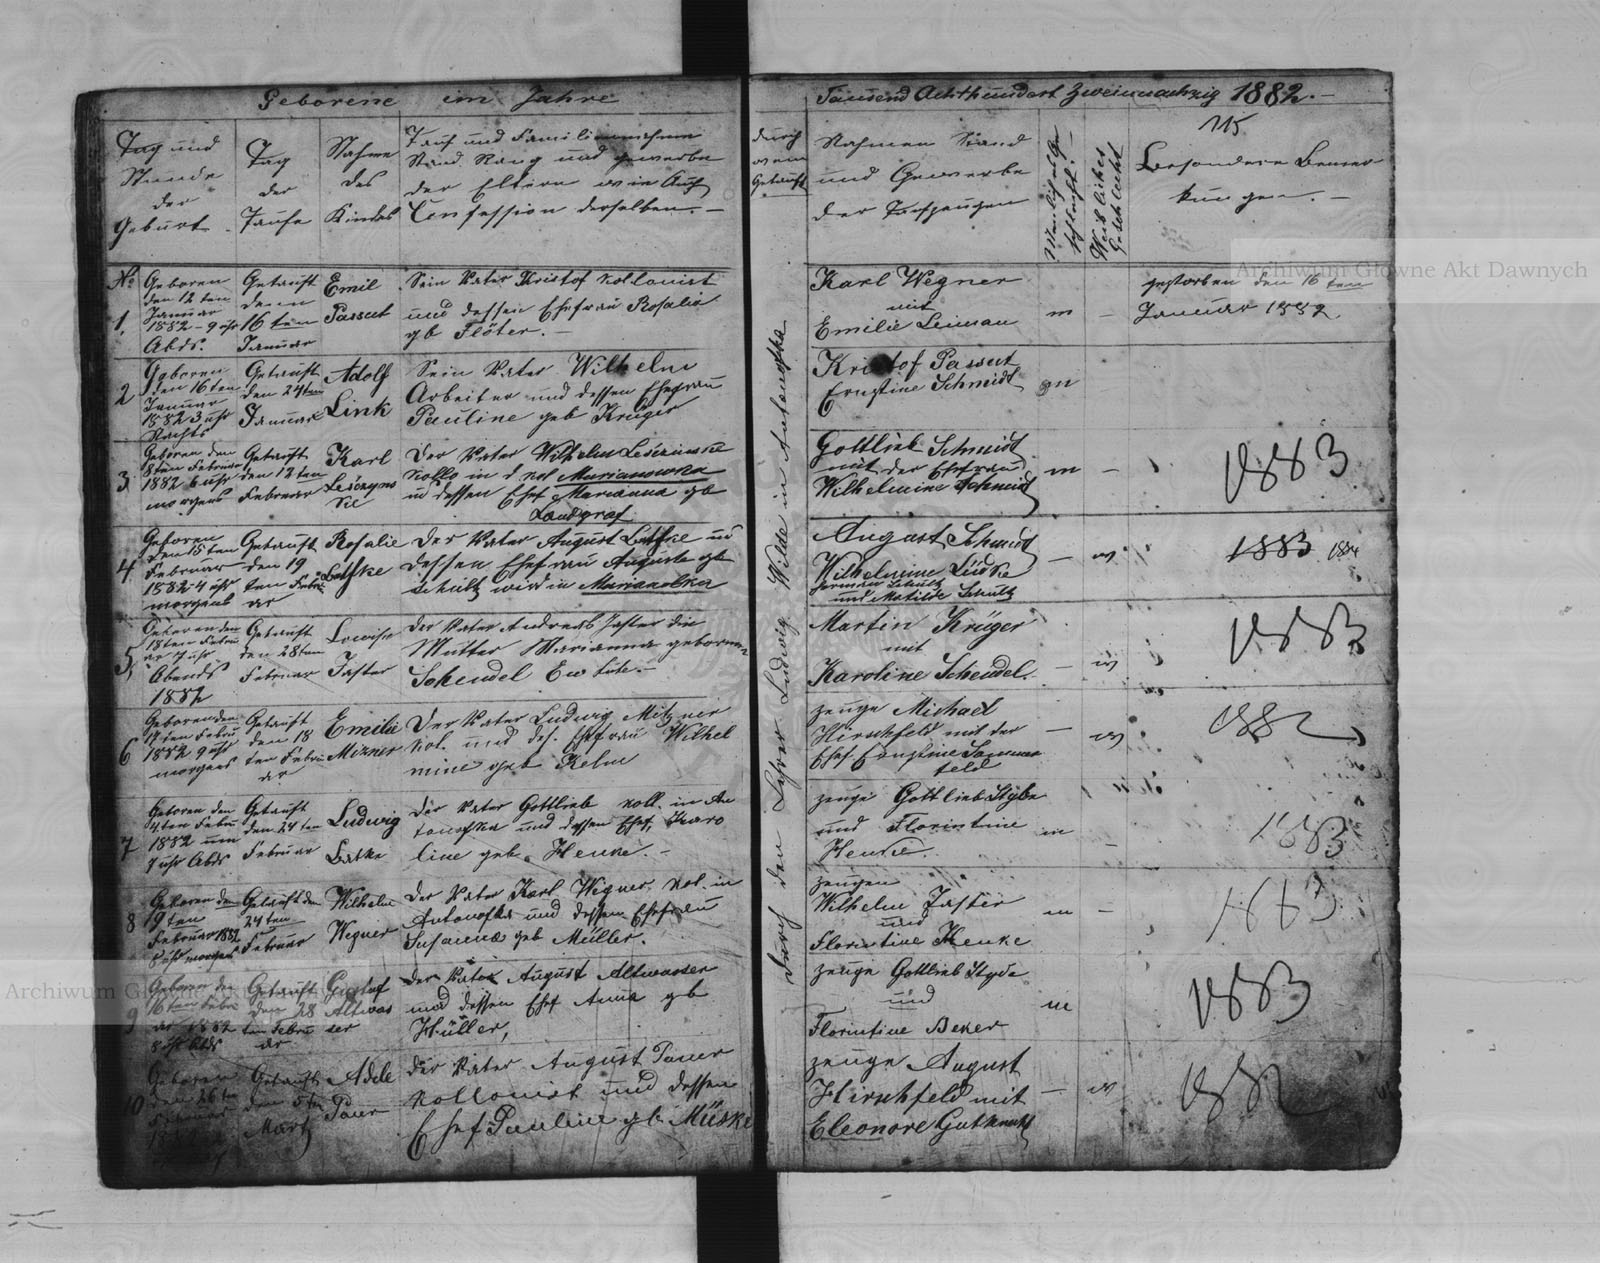 Geborene im Jahre
Tausend Achthundert Zweiunachzig 1882.
115
Tag und
Stunde
der
Geburt
Tag
der
Taufe
Nahme
des
Kindes
Tauf und Familiennahme
Stand Rang und gewerbe
der Eltern wie Auch
Confession derselben.
durch
wem
Getauft
Nahmen Stand
und Gewerbe
der Taufzeugen
Weibliches
Geschlecht
Besondere Bemer
kungen.
No
1.
Geboren
den 12 ten
Januar
1882 - 9 uhr
Abds.
Getauft
denn
16 ten
Januar
Emil
Passut
Sein Vater Kristof Kollonist
und dessen Ehefrau Rosalie
gb Flöter.
Karl Wegner
mit
Emilie Leiman
m
gestorben den 16 ten
Januar 1882
2
Geboren
den 16 ten
Januar
1882 3 uhr
Nachts
Getauft
den 24 ten
Januar
Adolf
Link
Sein Vater Wilhelm
Arbeiter und dessen Ehefrau
Pauline geb Krüger
Kristof Passut
Ernstine Schmidt
m
3
Geboren den
8 ten Februar
1882 6 uhr
morgens
Getauft
den 12 ten
Februar
Karl
Lesczyns
kie
Der Vater Wilhelm
in d Kol Marianowka
u dessen Ehef Marianna gb
Landgraf
Gottlieb Schmidt
mit der Ehefrau
Wilhelmine Schmidt
m
1883
4
Geboren
den 15 ten
Februar
1882 4 uhr
morgens
Getauft
den 19
ten Febru
ar
Rosalie
Latske
Der Vater August Latske und
dessen Ehefrau Auguste gb
Schultz
August Schmidt
Wilhelmine Lüdke
Herman Schultz
und Matilde Schultz
w
1883 1884
5.
Geboren den
18 ten Febru
ar 7 uhr
Abends
1882
Getauft
den 28 ten
Februar
Lowise
Jaster
Der Vater Andreas Jaster die
Mutter Marianna geboren
Schendel
Martin Krüger
mit
Karoline Schendel
w
1883
6
Geboren den
17 ten Febru
1882 9 uhr
morgens
Getauft
den 18
ten Febru
ar
Emilie
Mizner
Der Vater Ludwig Mitzner
Kol. und des. Ehefrau Wilhel
mine geb Kelm
zeuge Michael
Hirschfeld mit der
Ehef Ernstine Sommer
feld
w
1882
7
Geboren den
4 ten Febru
1882 um
7 uhr Abds
Getauft
den 24 ten
Februar
Ludwig
Latke
der Vater Gottlieb Koll. in An
tonofka und dessen Ehef, Karo
line geb. Henke.
zeuge Gottlieb Styde
und Florintine
Henke.
m
1883
8
Geboren den
19 ten
Februar 1882
8 uhr morgens
Getauft den
24 ten
Februar
Wilhelm
Wegner
Der Vater Karl Wegner. Kol. in
Antonofka und dessen Ehefrau
Susanna geb Müller.
zeugen
Wilhelm Jaster
und
Florintine Henke
m
1883
9
Geboren den
16 ten Febru
ar 1882
8 uhr Abds
Getauft
den 28
ten Febru
ar
Gustaf
Altwas
ser
der Vater August Altwasser
und dessen Ehef Anna gb
Hüller,
zeuge Gottlieb Styde
und
Florintine Beker
m
1883
10
Geboren
den 26 ten
Februar
Getauft
den 5 ten
Marz
Adele
Pauer
der Vater August Pauer
Kollonist und dessen
Ehef Pauline gb. Müske
zeuge August
Hirschfeld mit
Eleonore Gutknecht
w
1882
durch den Lehrer Ludwig Wilde in Antonofka
Archiwum Główne Akt Dawnych
Archiwum Główne Akt Dawnych